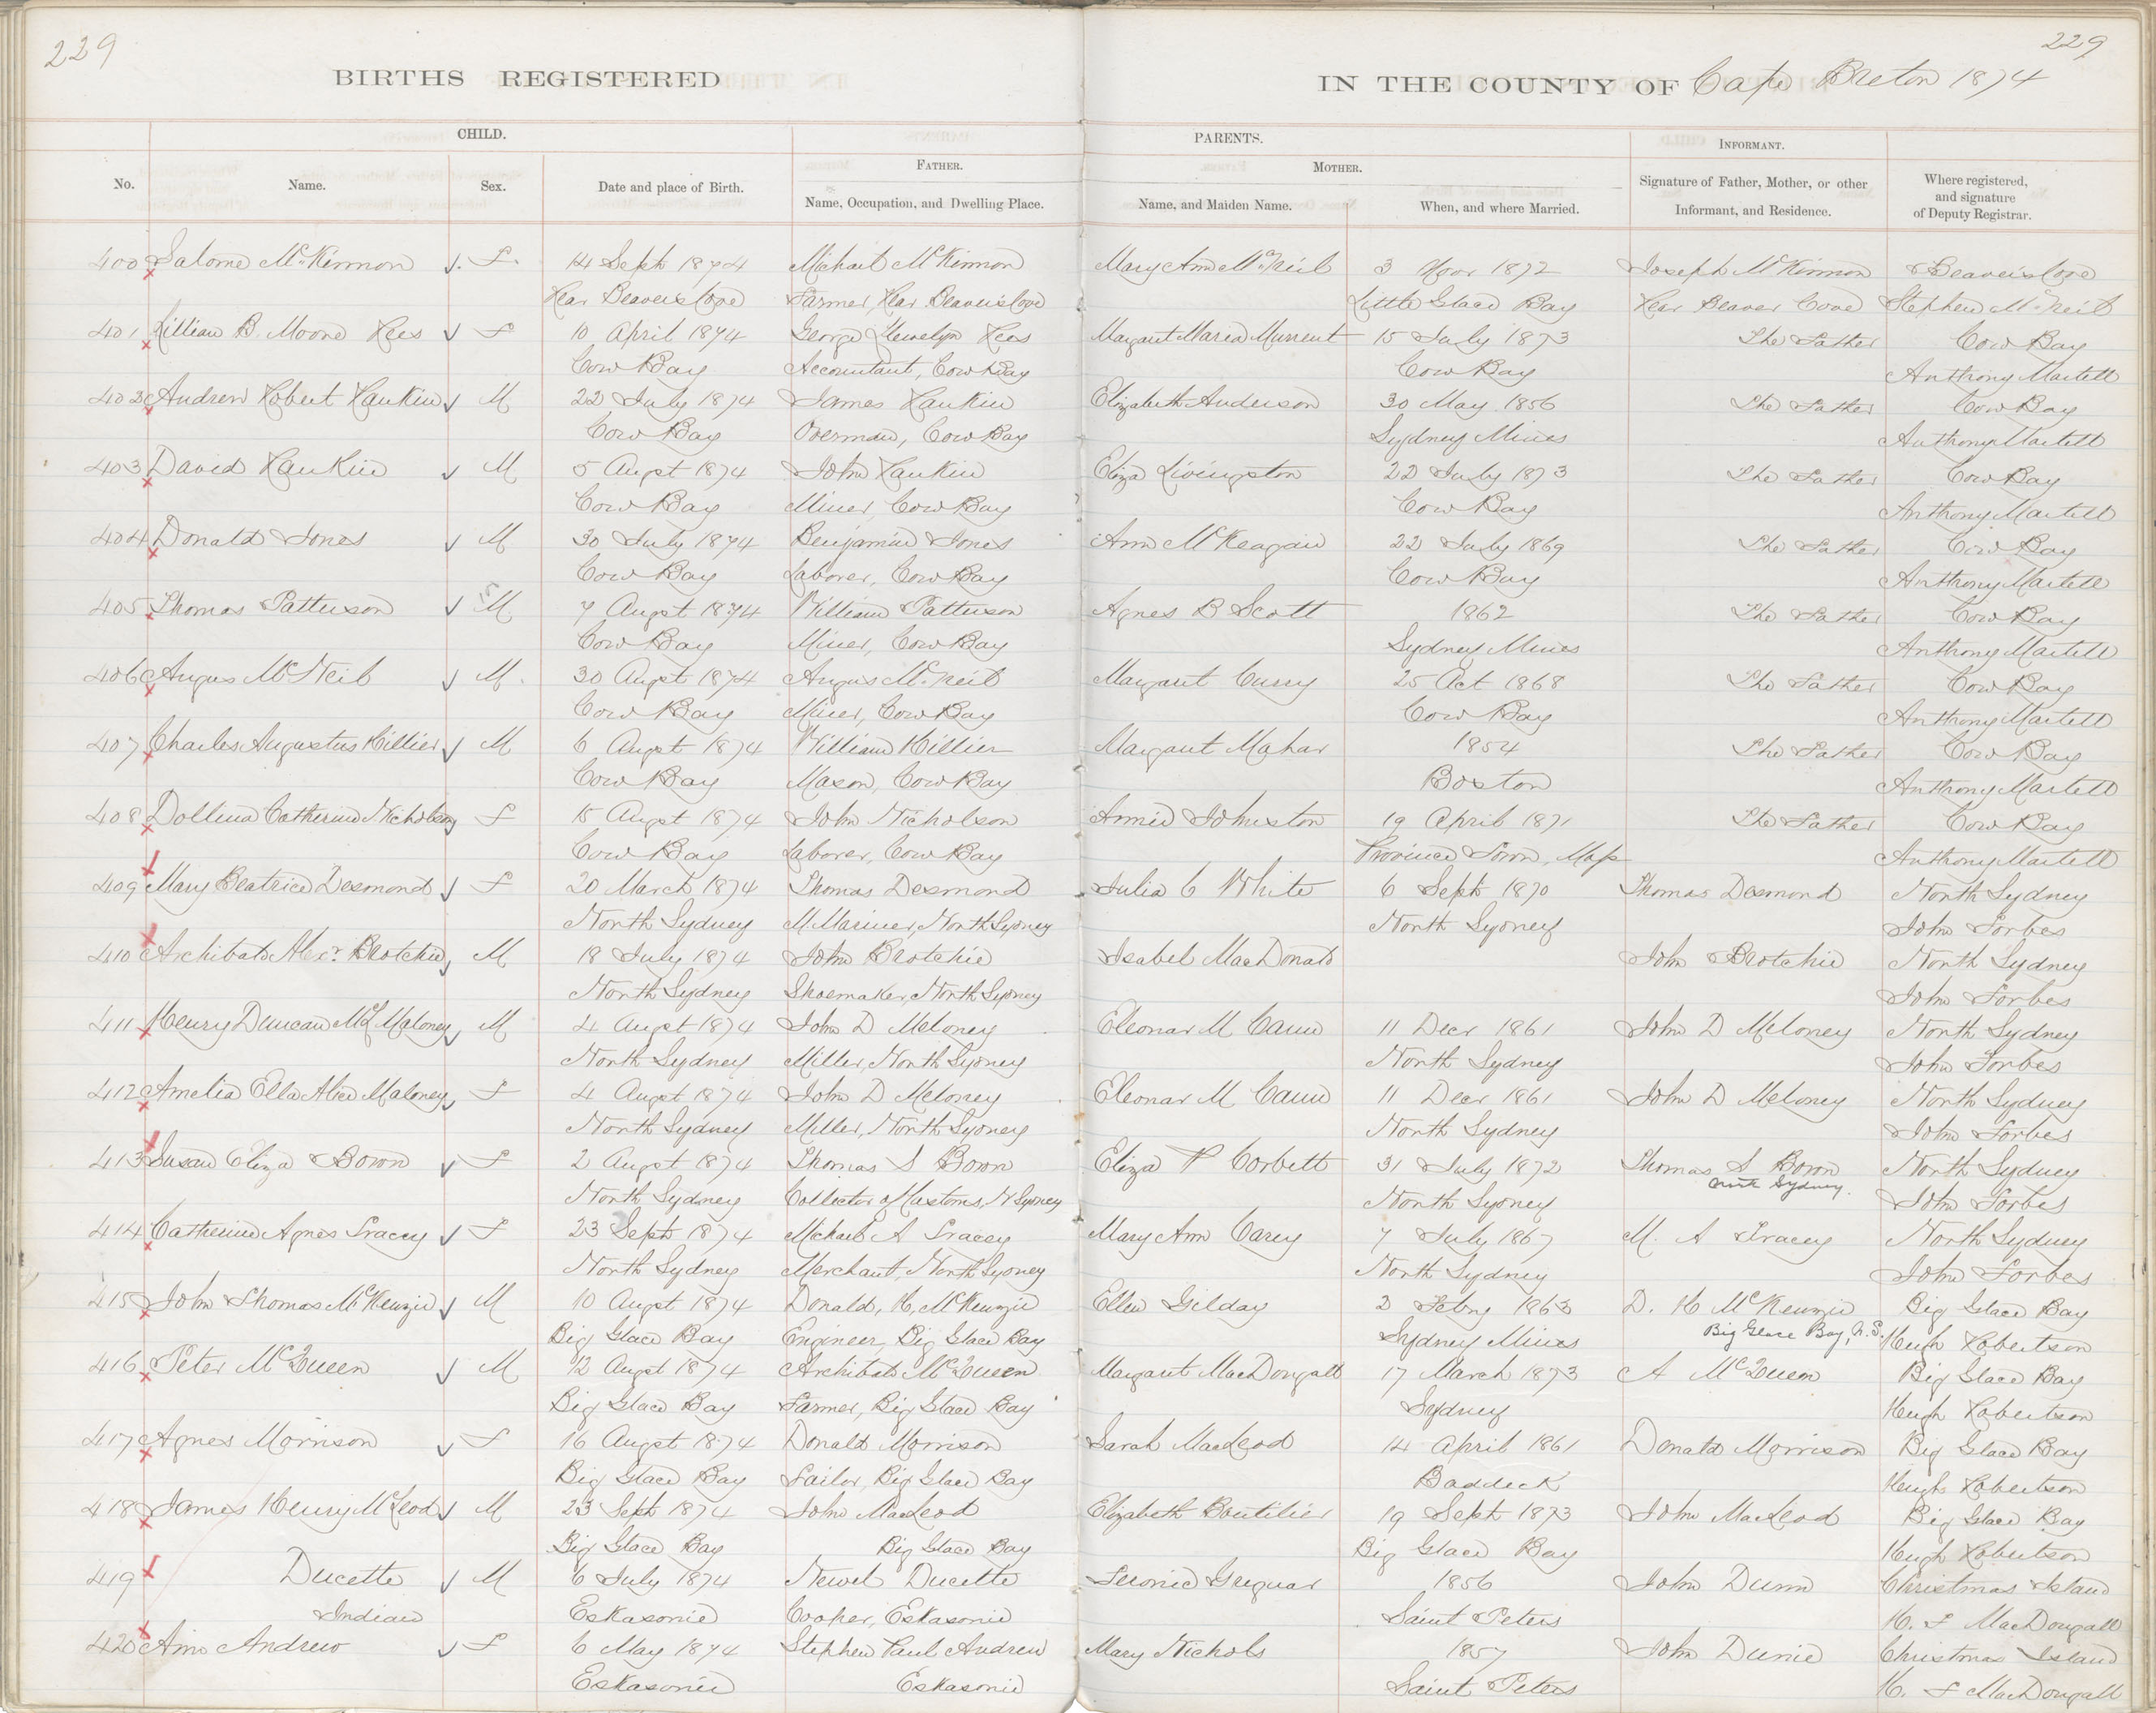 229
229
BIRTHS REGISTERED
IN THE COUNTY OF Cape Breton 1874
CHILD.
PARENTS.
INFORMANT.
FATHER.
MOTHER.
No.
Name.
Sex.
Date and place of Birth.
Name, Occupation, and Dwelling Place.
Name, and Maiden Name.
When, and where Married.
Signature of Father, Mother, or other
Informant, and Residence.
Where registered,
and signature
of Deputy Registrar.
400 Salome McKinnon F. 14 Sept 1874 Michael McKinnon Mary Ann McNeil 3 Novr 1872 Joseph McKinnon Beavers Cove
Rear Beavers Cove Farmer, Rear Beavers Cove Little Glace Bay Rear Beaver Cove Stephen McNeil
401 Lillian B. Moore Rees F 10 April 1874 George Llewelyn Rees Margaret Maria Murrent 15 July 1873 The Father Cow Bay
Cow Bay Accountant, Cow Bay Cow Bay Anthony Martell
402 Andrew Robert Rankin M 22 July 1874 James Rankin Elizabeth Anderson 30 May 1856 The Father Cow Bay
Cow Bay Overman, Cow Bay Sydney Mines Anthony Martell
403 David Rankin M 5 Augst 1874 John Rankin Eliza Livingston 22 July 1873 The Father Cow Bay
Cow Bay Miner, Cow Bay Cow Bay Anthony Martell
404 Donald Jones M 30 July 1874 Benjamin Jones Ann McKeagan 22 July 1869 The Father Cow Bay
Cow Bay Laborer, Cow Bay Cow Bay Anthony Martell
405 Thomas Patterson M. 7 Augst 1874 William Patterson Agnes B Scott 1862 The Father Cow Bay
Cow Bay Miner, Cow Bay Sydney Mines Anthony Martell
406 Angus McNeil M. 30 Augst 1874 Angus McNeil Margaret Curry 25 Oct 1868 The Father Cow Bay
Cow Bay Miner, Cow Bay Cow Bay Anthony Martell
407 Charles Augustus Hillier M 6 Augst 1874 William Hillier Margaret Mahar 1854 The Father Cow Bay
Cow Bay Mason, Cow Bay Boston Anthony Martell
408 Dollina Catherine Nicholson F 15 Augst 1874 John Nicholson Annie Johnston 19 April 1871 The Father Cow Bay
Cow Bay Laborer, Cow Bay Province Town, Mass Anthony Martell
409 Mary Beatrice Desmond F 20 March 1874 Thomas Desmond Julia C White 6 Sept 1870 Thomas Desmond North Sydney
North Sydney M. Mariner, North Sydney North Sydney John Forbes
410 Archibald Alexr. Brotchie M 18 July 1874 John Brotchie Isabel MacDonald John Brotchie North Sydney
North Sydney Shoemaker, North Sydney John Forbes
411 Henry Duncan McL Maloney M 4 Augst 1874 John D Meloney Eleonar M Cann 11 Decr 1861 John D Meloney North Sydney
North Sydney Miller, North Sydney North Sydney John Forbes
412 Amelia Ella Alice Maloney F 4 Augst 1874 John D Meloney Eleonar M Cann 11 Decr 1861 John D Meloney North Sydney
North Sydney Miller, North Sydney North Sydney John Forbes
413 Susan Eliza Bown F 2 Augst 1874 Thomas S Bown Eliza P Corbett 31 July 1872 Thomas S Bown North Sydney
North Sydney.
North Sydney Collector of Customs, N Sydney North Sydney John Forbes
414 Catherine Agnes Tracey F 23 Sept 1874 Michael A Tracey Mary Ann Carey 7 July 1867 M. A Tracey North Sydney
North Sydney Merchant, North Sydney North Sydney John Forbes
415 John Thomas McKenzie M 10 Augst 1874 Donald, H, McKenzie Ellen Gilday 2 Febry 1863 D. H McKenzie Big Glace Bay
Big Glace Bay, N.S.
Big Glace Bay Engineer, Big Glace Bay Sydney Mines Hugh Robertson
416 Peter McQueen M 12 Augst 1874 Archibald McQueen Margaret MacDougall 17 March 1873 A McQueen Big Glace Bay
Big Glace Bay Farmer, Big Glace Bay Sydney Hugh Robertson
417 Agnes Morrison F 16 Augst 1874 Donald Morrison Sarah MacLeod 14 April 1861 Donald Morrison Big Glace Bay
Big Glace Bay Tailor, Big Glace Bay Baddeck Hugh Robertson
418 James Henry McLeod M 23 Sept 1874 John MacLeod Elizabeth Boutilier 19 Sept 1873 John MacLeod Big Glace Bay
Big Glace Bay Big Glace Bay Big Glace Bay Hugh Robertson
419 Ducette M 6 July 1874 Newel Ducette 1856 John Dunn Christmas Island
Indian Eskasonie Cooper, Eskasonie Saint Peters H. F MacDougall
420 Ann Andrew F 6 May 1874 Stephen Paul Andrew Mary Nichols 1857 John Christmas Island
Eskasonie Eskasonie Saint Peters H. F MacDougall